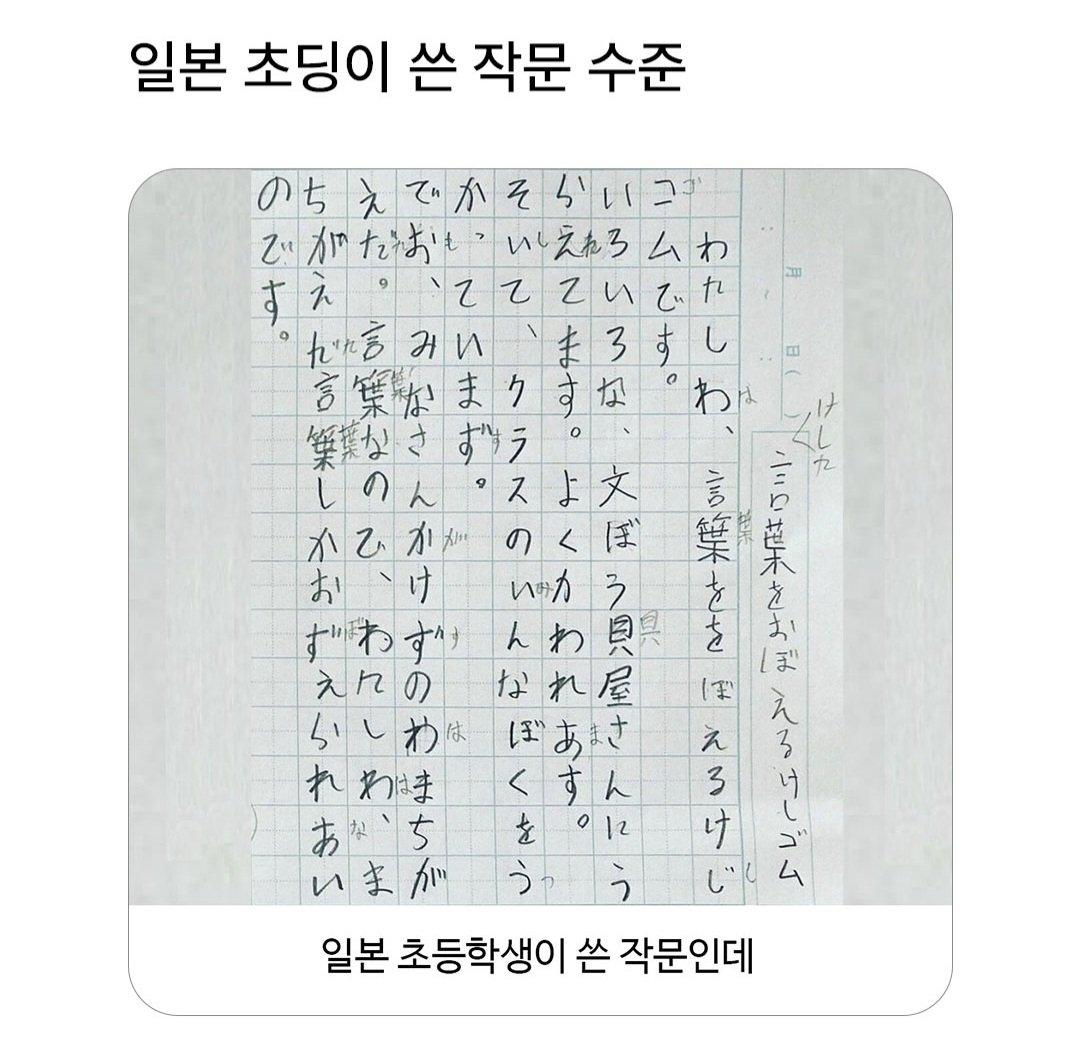 일본 초딩이 쓴 작문 수준
月 日(
けした
言葉をおぼえるけしゴム
わたしわ、言葉をを ぼえるけじ
は 葉 し
コムです。
ゴ
いろいろな、文ぼう貝屋さんにう
具
らえてます。よくかわれあす。
れ ま
そいて、クラスのいんなぼくをう
し み つ
かっていまず。
す
でお、みなさんかけずのわまちが
も が す は
えだ。言葉なのひ、わたしわ、ま
た 葉 は
ちがえだ言葉しかおずえられあい
た 葉 ぼ な
のです。
일본 초등학생이 쓴 작문인데